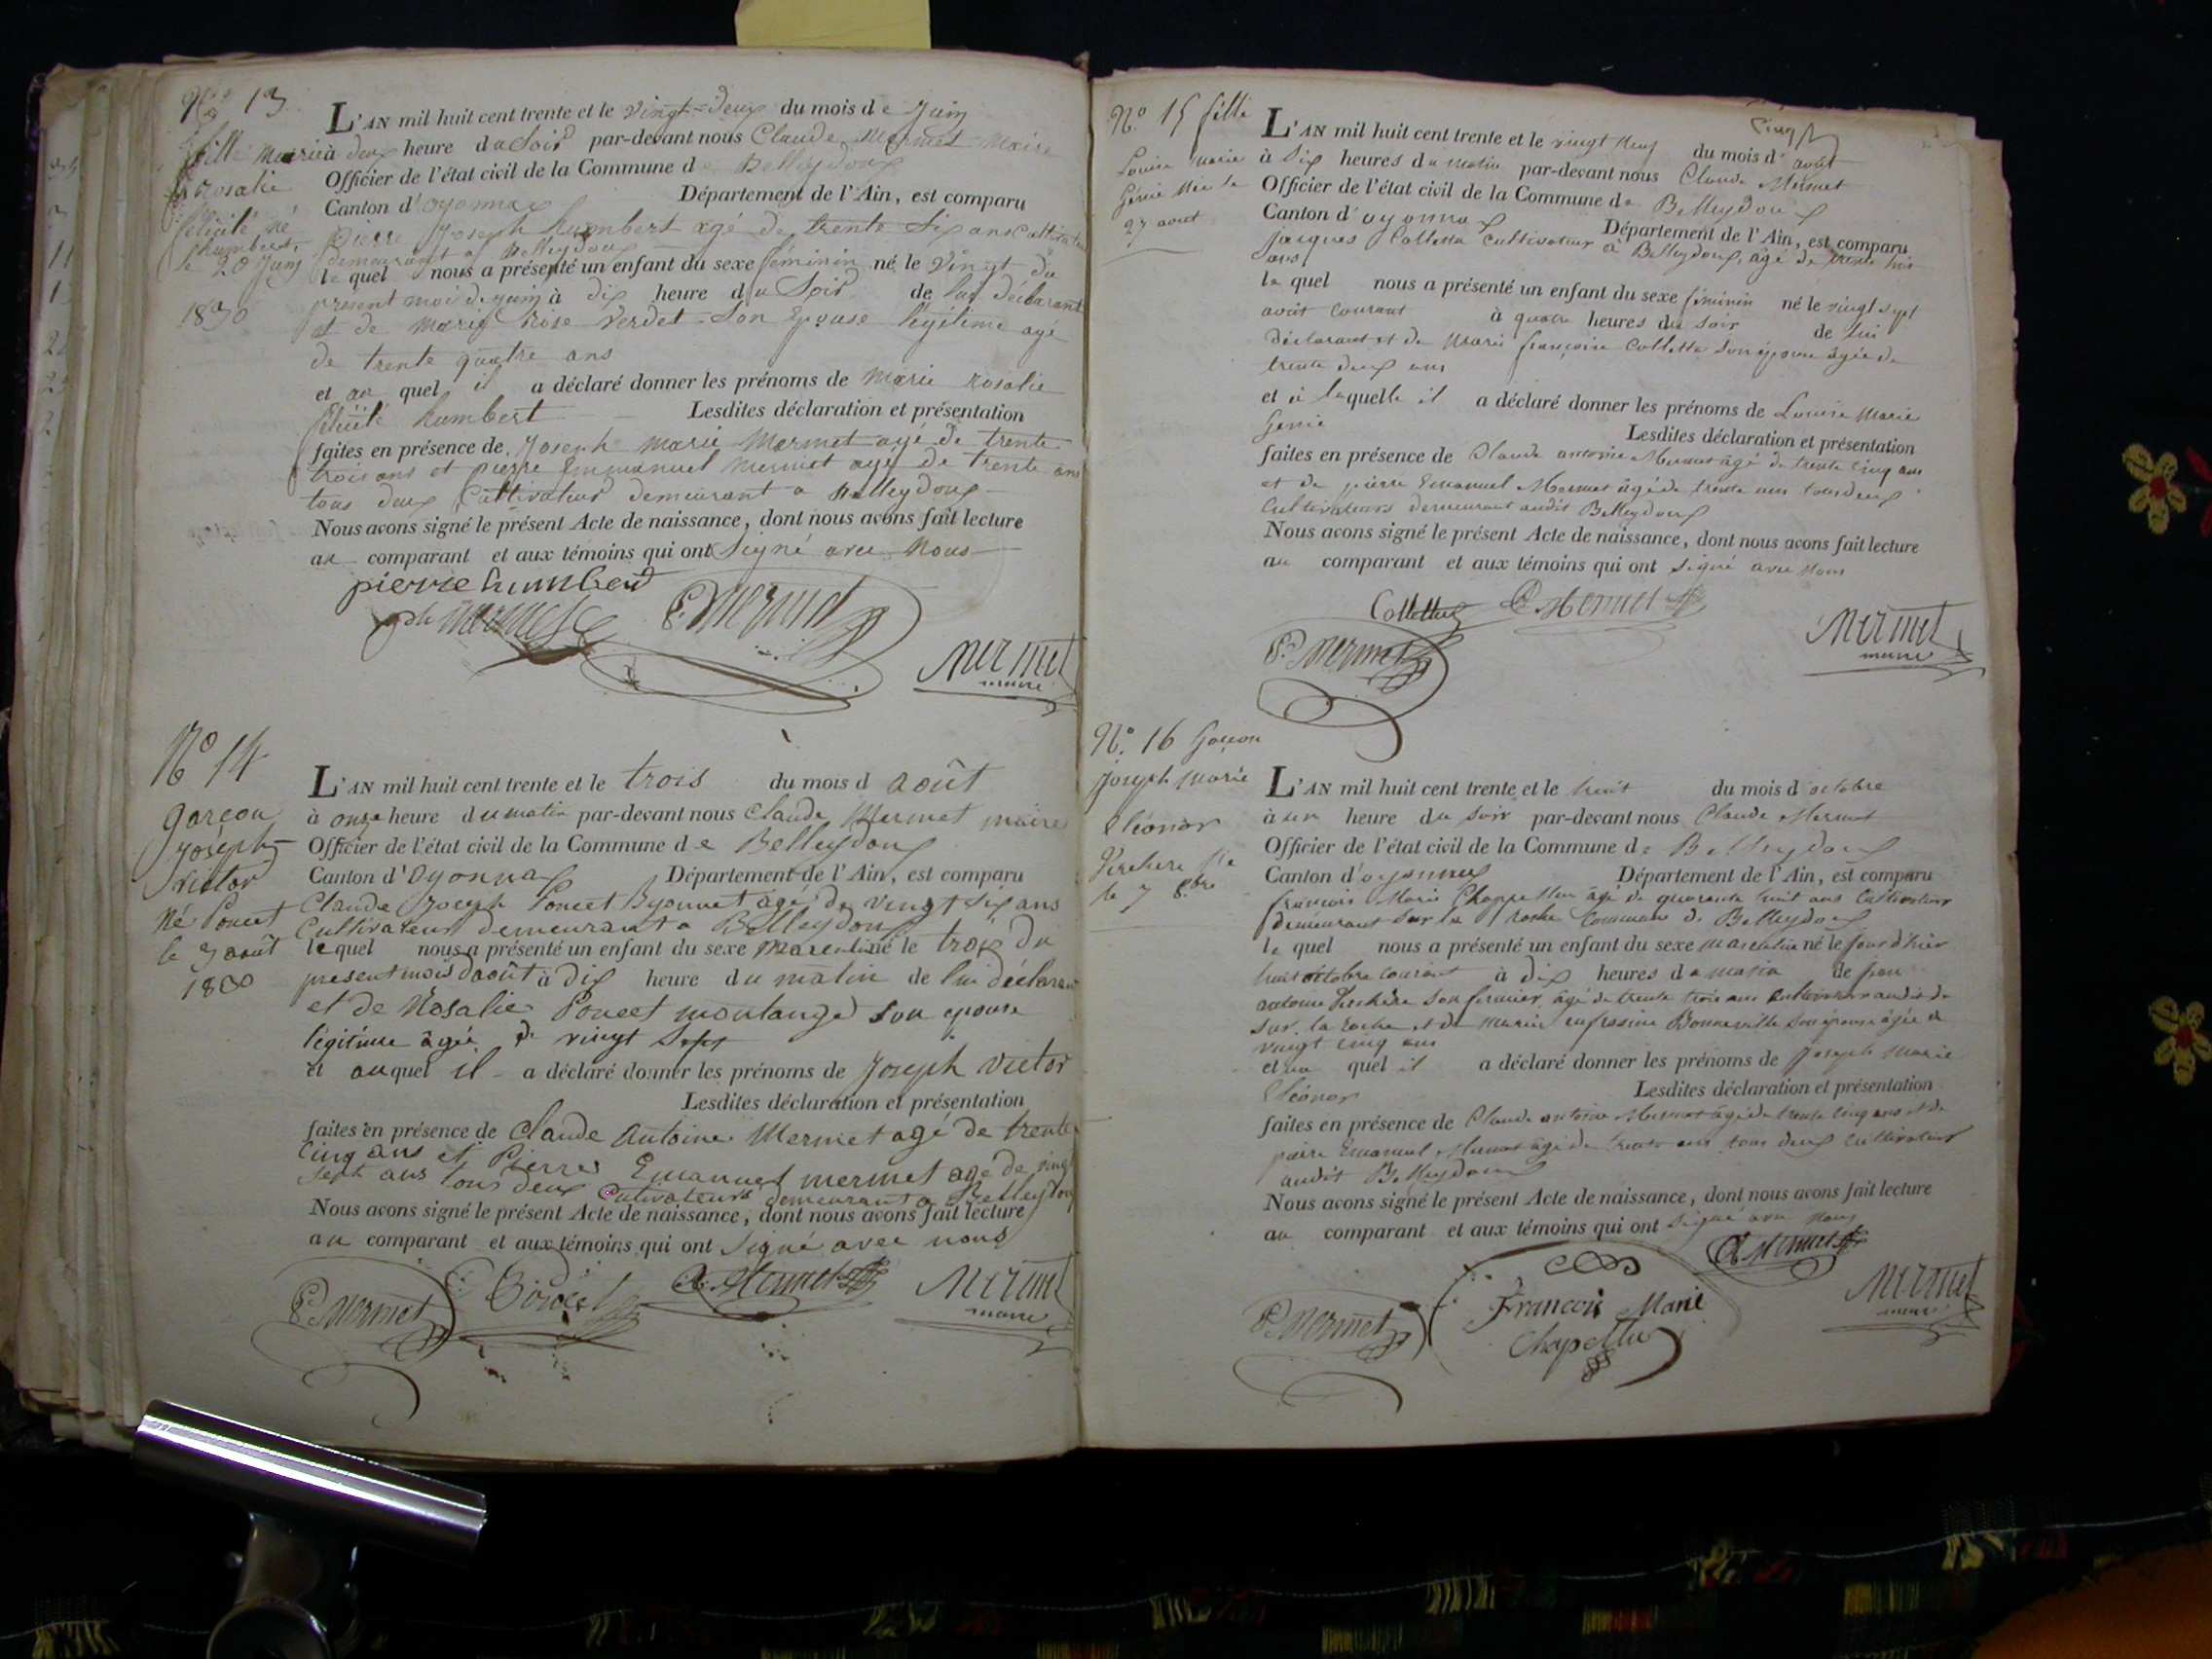 No 13
fille marie
rosalie
félicité né
humbert
le 20 Juin
1830
L'AN mil huit cent trente et le vingt-deux du mois de Juin
à deux heure du Soir par-devant nous Claude Mermet Maire
Officier de l'état civil de la Commune de Belleydoux
Canton d'oyonnax Département de l'Ain, est comparu
pierre Joseph humbert agé de trente six ans Cultivateur
demeurant a Belleydoux
le quel nous a présenté un enfant du sexe féminin né le vingt du
present mois de juin à dix heure du Soir de lui déclarant
et de marie rose Verdet Son Epouse légitime agé
de trente quatre ans
et au quel il a déclaré donner les prénoms de marie rosalie
félicité humbert Lesdites déclaration et présentation
faites en présence de Joseph marie Mermet agé de trente
trois ans et pierre Emmanuel mermet agé de trente ans
tous deux Cultivateur demeurant a Belleydoux
Nous avons signé le présent Acte de naissance, dont nous avons fait lecture
au comparant et aux témoins qui ont Signé avec Nous
pierre humbert
mermet P. Mermet
Mermet
maire
No 14
garçon
joseph
victor
né Poncet
le 3 août
1830
L'AN mil huit cent trente et le trois du mois d août
à onze heure du matin par-devant nous Claude Mermet maire
Officier de l'état civil de la Commune de Belleydoux
Canton d'Oyonnax Département de l'Ain, est comparu
Claude Joseph Poncet Byonnet âgé de vingt six ans
Cultivateur demeurant a Belleydoux
lequel nous a présenté un enfant du sexe masculin né le trois du
present mois daoût à dix heure du matin de lui déclarant
et de Rosalie Poncet montange son epouse
légitime âgée de vingt sept
et auquel il a déclaré donner les prénoms de Joseph victor
Lesdites déclaration et présentation
faites en présence de Claude Antoine Mermet agé de trente
cinq ans et Pierre Emanuel mermet agé de vingt
sept ans tous deux Cultivateurs demeurant a Belleydoux
Nous avons signé le présent Acte de naissance, dont nous avons fait lecture
au comparant et aux témoins qui ont Signé avec nous
P. Mermet Poncet Mermet Mermet
maire
No. 15 fille
Louise marie
Génie née le
27 août
cinq
L'AN mil huit cent trente et le vingt neuf du mois d'août
à six heures du matin par-devant nous Claude Mermet
Officier de l'état civil de la Commune de Belleydoux
Canton d'oyonnax Département de l'Ain, est comparu
jacques Colletta Cultivateur à Belleydoux, âgé de trente
ans
le quel nous a présenté un enfant du sexe féminin né le vingt sept
août courant à quatre heures du soir de lui
déclarant et de Marie françoise Colletta son épouse âgée de
trente deux ans
et à laquelle il a déclaré donner les prénoms de Louise Marie
Génie Lesdites déclaration et présentation
faites en présence de Claude antoine Mermet âgé de trente cinq ans
et de pierre Emanuel Mermet âgé de trente ans tous deux
Cultivateurs demeurant audit Belleydoux
Nous avons signé le présent Acte de naissance, dont nous avons fait lecture
au comparant et aux témoins qui ont signé avec nous
Colletta Mermet
P. Mermet
Mermet
maire
No. 16 Garçon
joseph Marie
Eléonor
le 7 8bre
L'AN mil huit cent trente et le huit du mois d'octobre
à un heure du soir par-devant nous Claude Mermet
Officier de l'état civil de la Commune de Belleydoux
Canton d'oyonnax Département de l'Ain, est comparu
françois Marie Chappellu âgé de quarante huit ans Cultivateur
demeurant sur la roche Commune de Belleydoux
le quel nous a présenté un enfant du sexe masculin né le jour d'hier
huit octobre courant à dix heures du matin de jean
antoine son fermier, âgé de trente trois ans Cultivateur audit de
sur la roche et de Marie eufrosine Bonneville son épouse âgée de
vingt cinq ans
et au quel il a déclaré donner les prénoms de Joseph Marie
Eléonor Lesdites déclaration et présentation
faites en présence de Claude antoine Mermet âgé de trente cinq ans et de
pierre Emanuel Mermet âgé de trente ans tous deux Cultivateurs
audit Belleydoux
Nous avons signé le présent Acte de naissance, dont nous avons fait lecture
au comparant et aux témoins qui ont signé avec nous
Mermet
P. Mermet François Marie Mermet
Chapellu maire